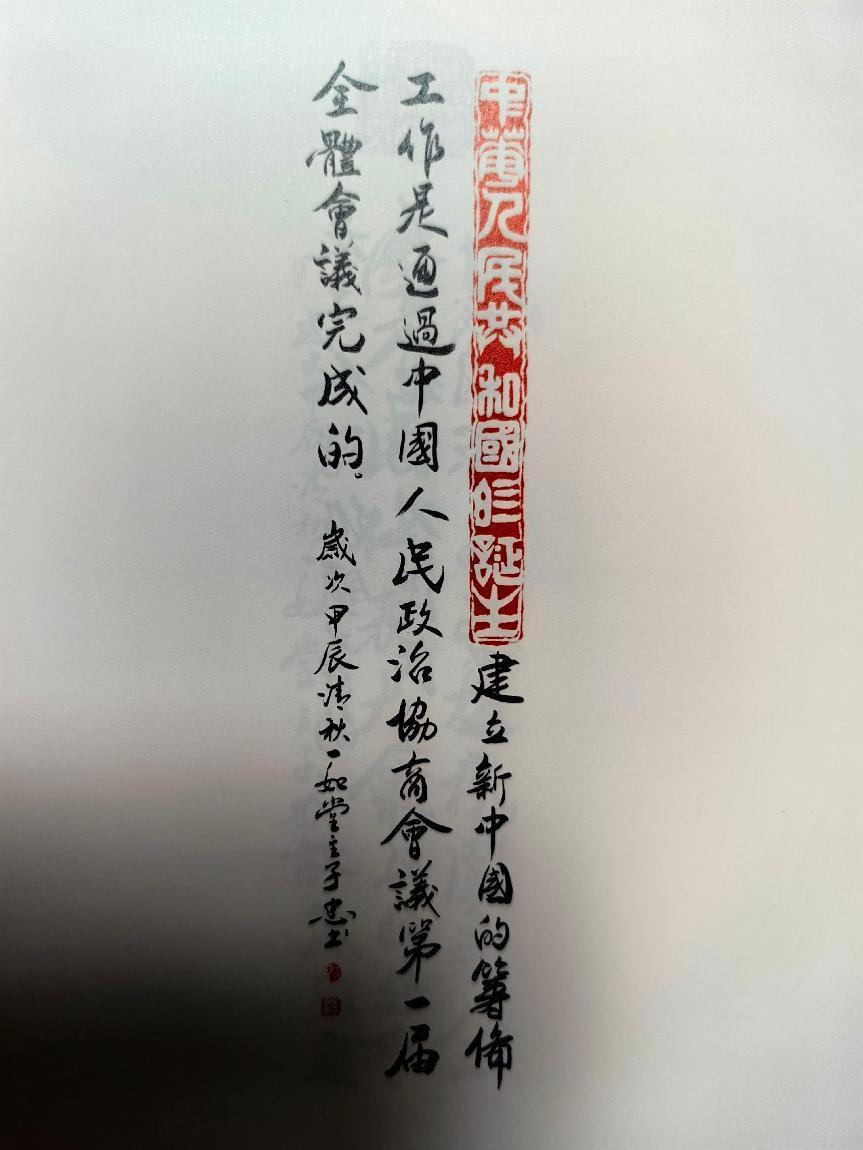 中華人民共和國的誕生建立新中國的籌備
工作是通過中國人民政治協商會議第一届
全體會議完成的。歲次甲辰清秋一如堂主子忠书